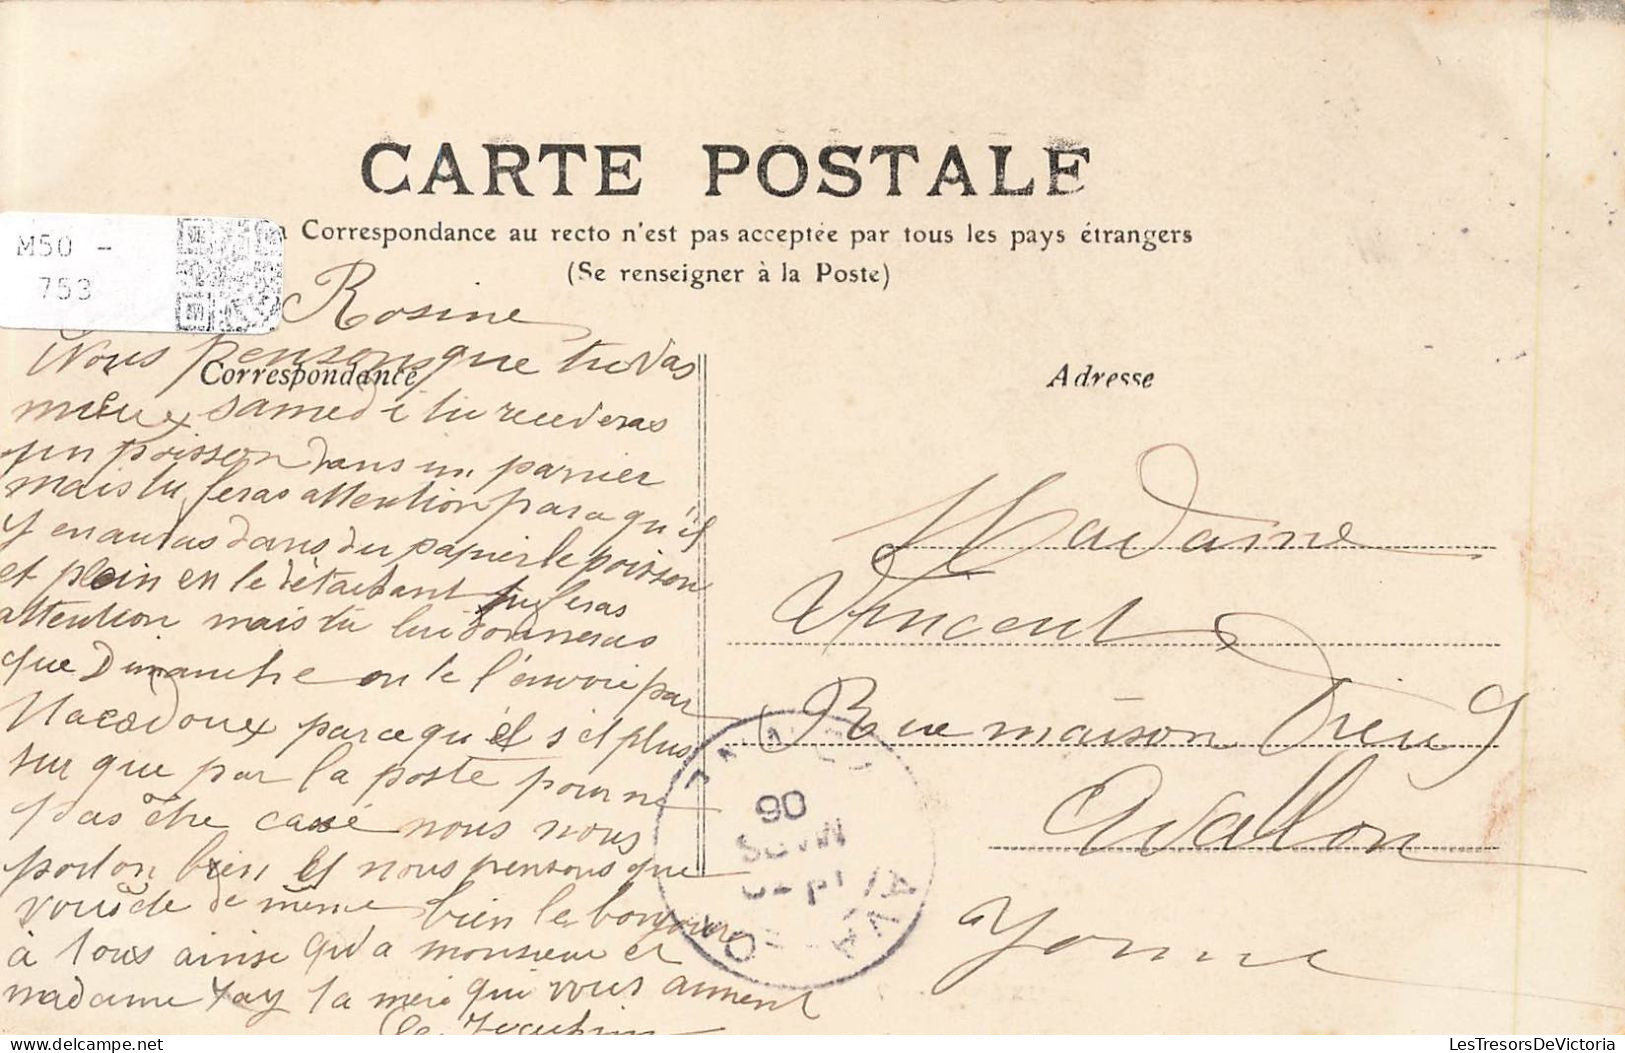 CARTE POSTALE
Correspondance au recto n'est pas acceptée par tous les pays étrangers
(Se renseigner à la Poste)
M50 -
753
Rosine
Nous pensons que tu vas
Correspondance
mieux samedi tu recevras
un poisson dans un panier
mais tu feras attention parce qu'il
y en auras dans du papier le poisson
et plein en le détachant tu feras
attention mais tu lui donneras
que Dimanche on te l'envoie par
Macadoux parce qu'il s'et plus
sur que par la poste pour ne
pas être cassé nous nous
porton bien et nous pensons que
vous de même bien le bonjour
à tous ainsi qu'a monsieur et
madame la mère qui vous aiment
Adresse
Madame
Vincent
Rue maison Dieu 9
Avalon
Yonne
06
LesTresorsDeVictoria @ delcampe.net
LesTresorsDeVictoria